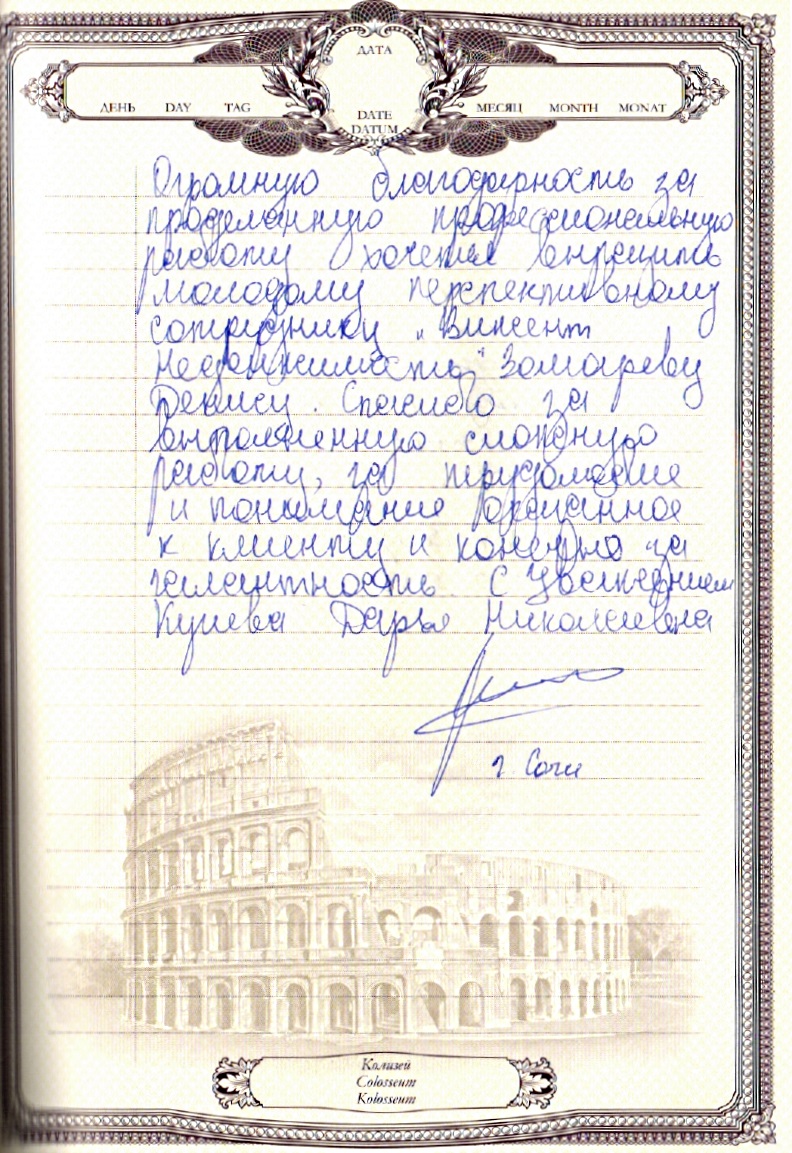 ДАТА
ДЕНЬ DAY TAG
DATE
DATUM
МЕСЯЦ MONTH MONAT
Огромную благодарность за
проделанную профессиональную
работу хочется выразить
молодому перспективному
сотруднику „Винсент
Недвижимость"
Денису. Спасибо за
выполненную сложную
работу, за трудолюбие
и понимание оказанное
к клиенту и конечно за
галантность. С Уважением
Дарья Николаевна
г. Сочи
Колизей
Colosseum
Kolosseum